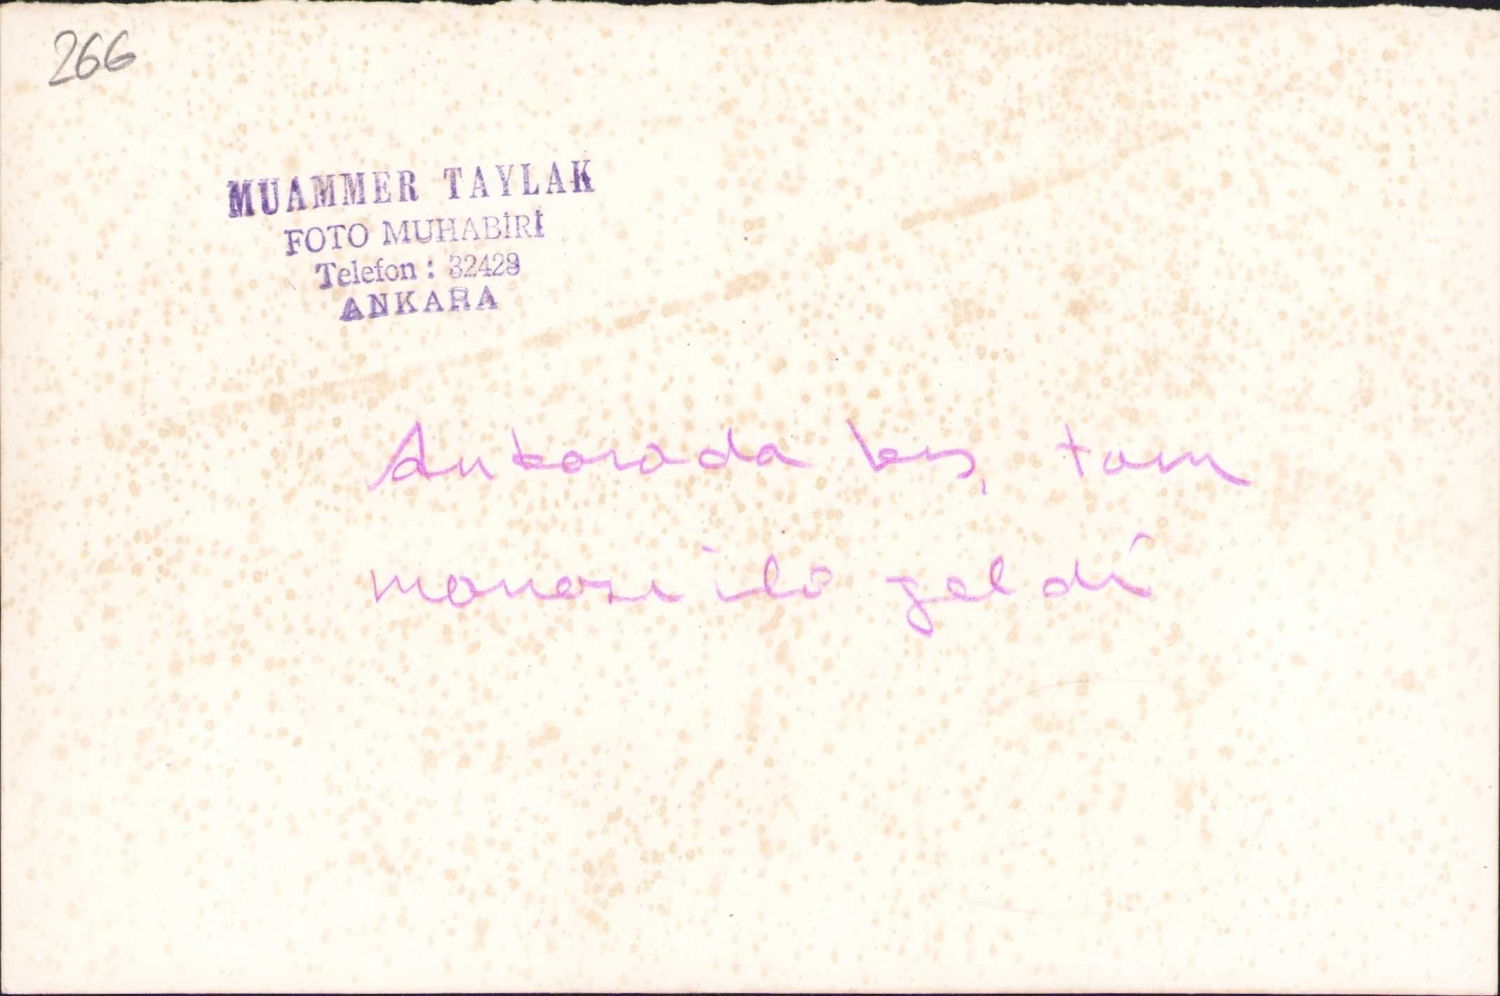 266
MUAMMER TAYLAK
FOTO MUHABİRİ
Telefon : 32429
ANKARA
Ankarada kış, tam
manası ile geldi